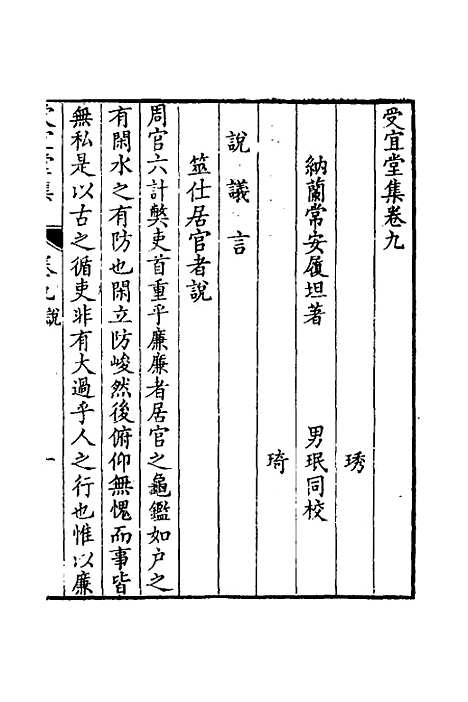 受宜堂集卷九
琇
納蘭常安履坦著　男珉同校
琦
說議言
筮仕居官者說
周官六計獘吏首重乎廉廉者居官之龜鑑如户之
有閑水之有防也閑立防峻然後俯仰無愧而事皆
無私是以古之循吏非有大過乎人之行也惟以廉
受宜堂集　卷九說　一